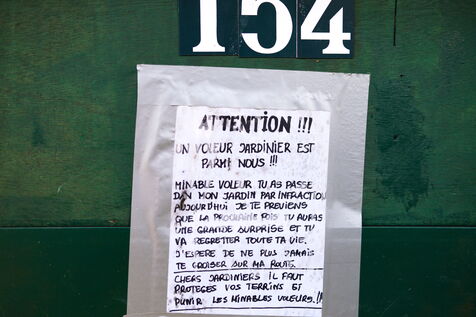 154
ATTENTION !!!
UN VOLEUR JARDINIER EST
PARMI NOUS !!!
MINABLE VOLEUR TU AS PASSE
DAN MON JARDIN PAR INFRACTION
AUJOURD'HUI JE TE PREVIENS
QUE LA PROCHAINE FOIS TU AURAS
UNE GRANDE SURPRISE ET TU
VA REGRETTER TOUTE TA VIE.
J'ESPERE DE NE PLUS JAMAIS
TE CROISER SUR MA ROUTE.
CHERS JARDINIERS IL FAUT
PROTEGES VOS TERRINS ET
PUNIR LES MINABLES VOLEURS.!!